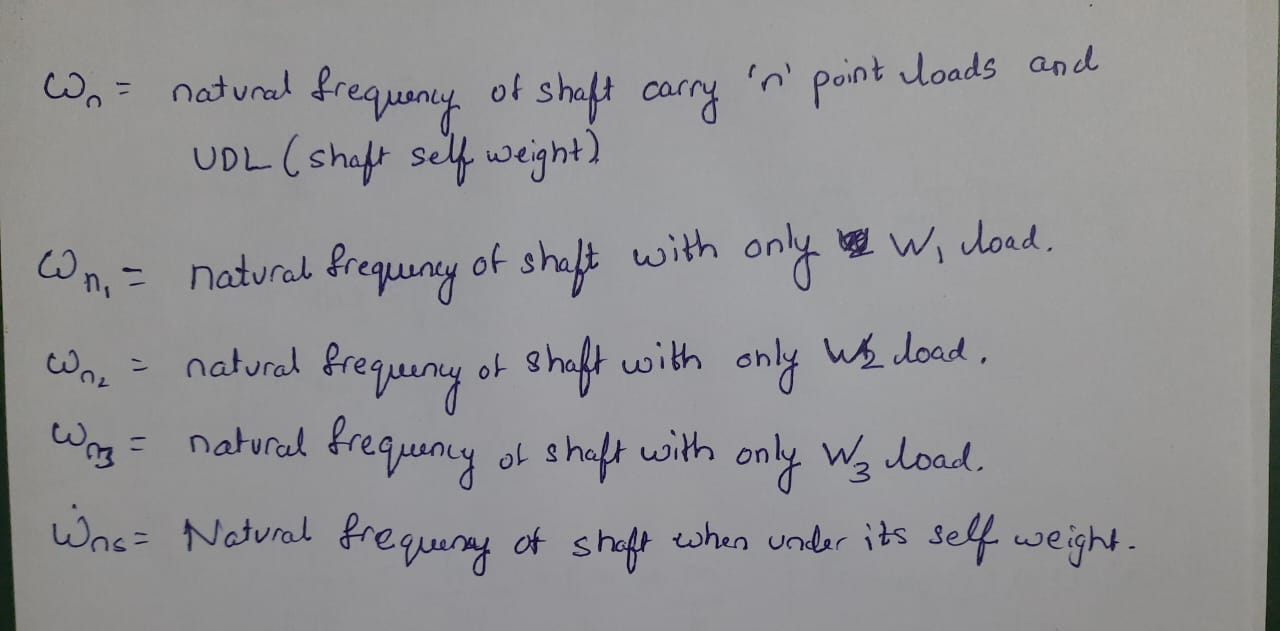 ωn = natural frequency of shaft carry 'n' point loads and
UDL (shaft self weight)
ωn1 = natural frequency of shaft with only W1 load.
ωn2 = natural frequency of shaft with only W2 load.
ωn3 = natural frequency of shaft with only W3 load.
ωns = Natural frequency of shaft when under its self weight.